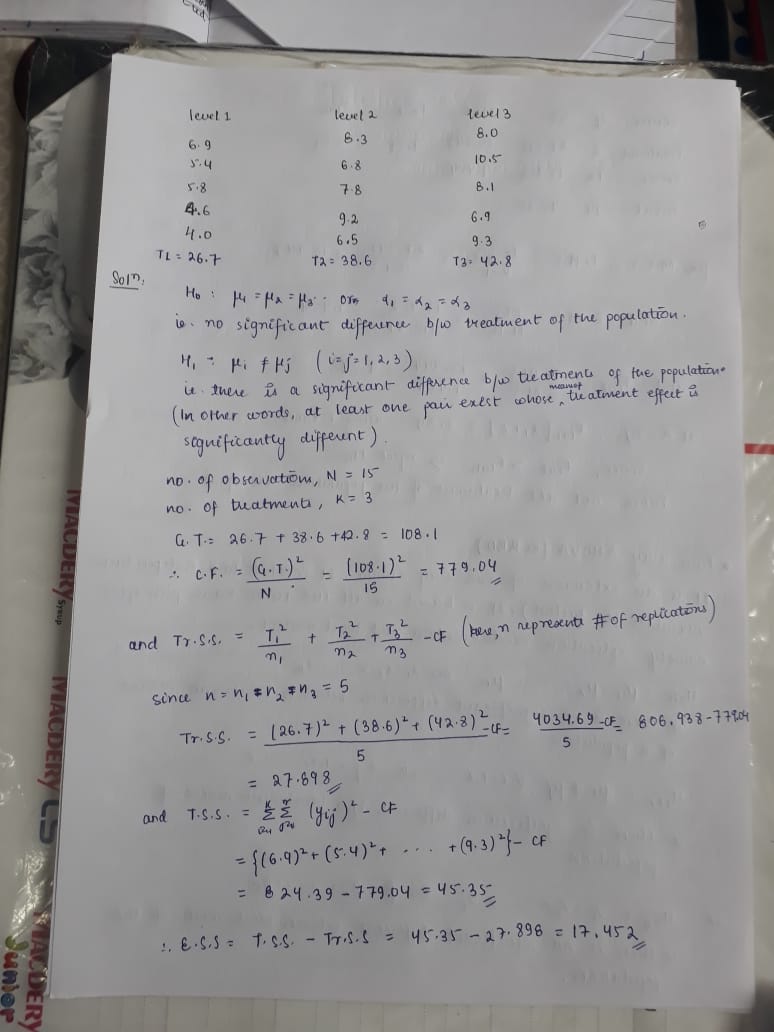 level 1 level 2 level 3
6.9 8.3 8.0
5.4 6.8 10.5
5.8 7.8 8.1
4.6 9.2 6.9
4.0 6.5 9.3
T1 = 26.7 T2 = 38.6 T3 = 42.8
Soln.
H₀ : μ₁ = μ₂ = μ₃ . or α₁ = α₂ = α₃
ie. no significant difference b/w treatment of the population.
H₁ : μi ≠ μj (i=j=1,2,3)
ie. there is a significant difference b/w treatments of the population.
(In other words, at least one pair exist whose, mean of treatment effect is
significantly different).
no. of observation, N = 15
no. of treatments, K = 3
G.T. = 26.7 + 38.6 + 42.8 = 108.1
∴ C.F. = (G.T.)²/N = (108.1)²/15 = 779.04
and Tr.S.S. = T₁²/n₁ + T₂²/n₂ + T₃²/n₃ - CF (here, n represents # of replications)
since n = n₁ = n₂ = n₃ = 5
Tr.S.S. = (26.7)² + (38.6)² + (42.8)²/5 - CF = 4034.69/5 - CF = 806.938 - 779.04
= 27.898
and T.S.S. = ΣΣ (yij)² - CF
= {(6.9)² + (5.4)² + . . . + (9.3)²} - CF
= 824.39 - 779.04 = 45.35
∴ E.S.S = T.S.S. - Tr.S.S = 45.35 - 27.898 = 17.452
MACDERY Syrup
MACDERY LS
MACDERY Junior